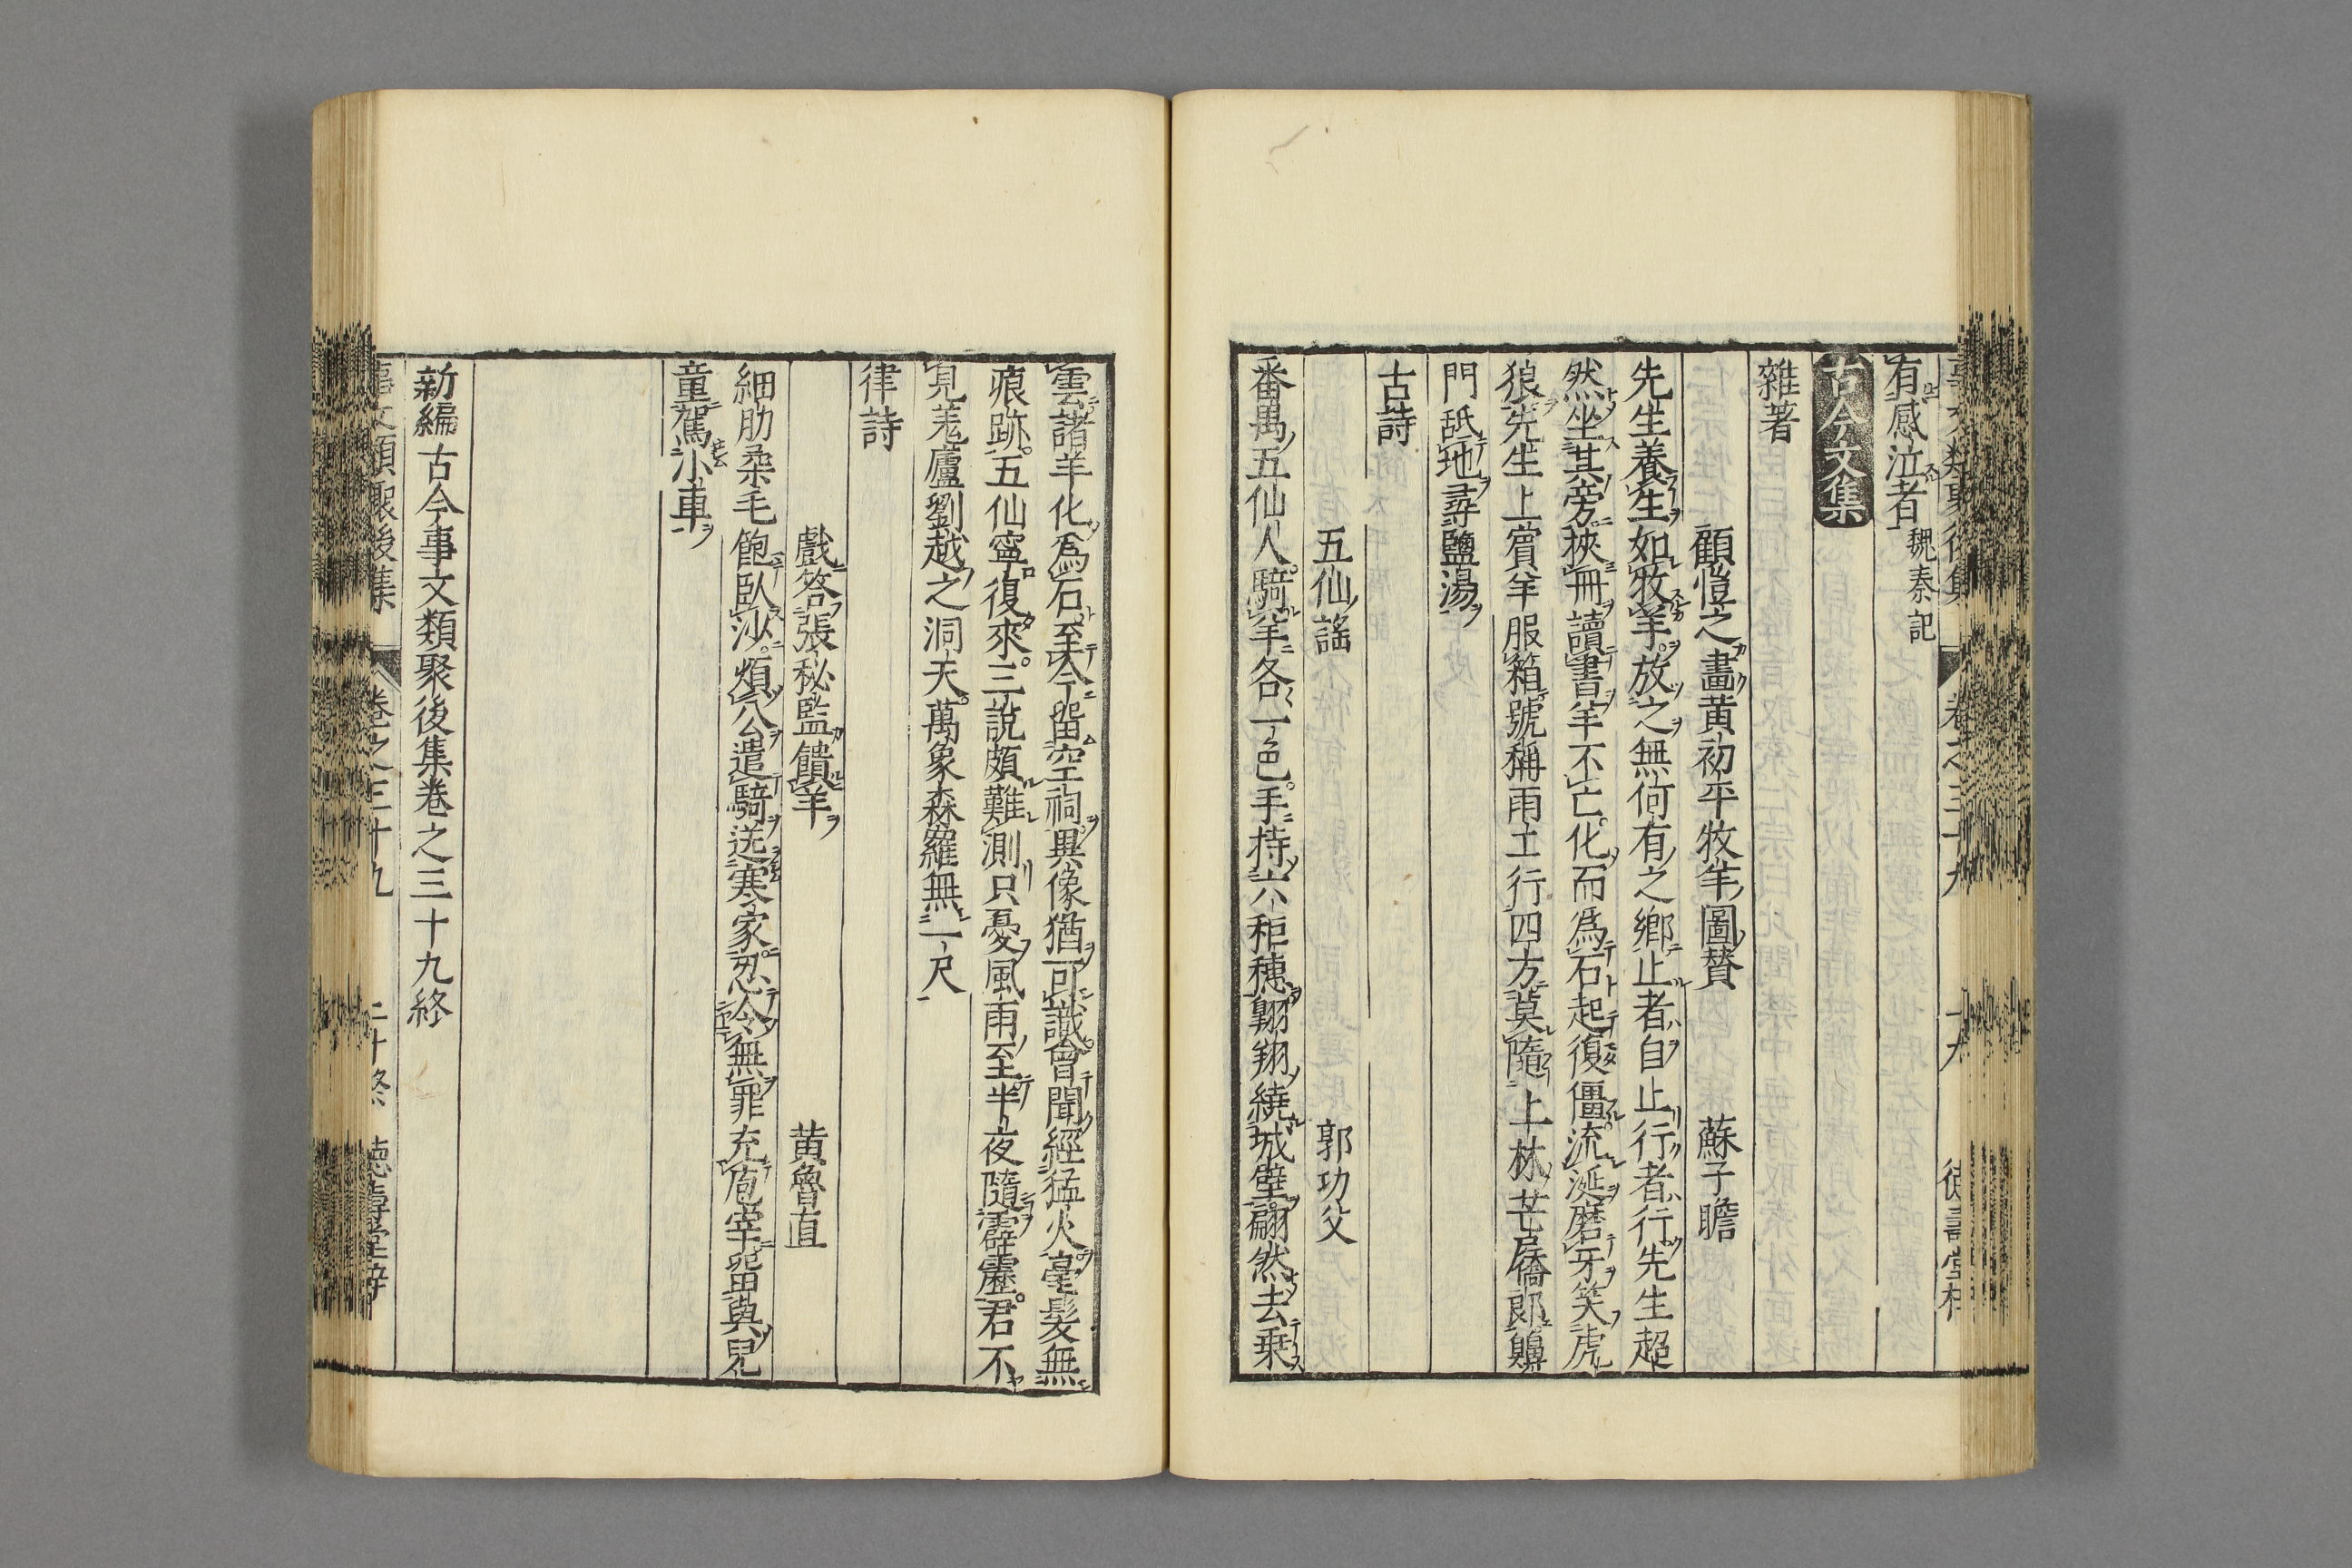 有感泣者 魏泰記
古今文集
雜著
顧愷之畫黄初平牧羊圖賛 蘇子瞻
先生養生如牧羊放之無何有之鄉止者自止行者行先生超
然坐其旁挾冊讀書羊不亡化而爲石起復僵流涎磨牙笑虎
狼先生上賓羊服箱號稱雨工行四方莫隨上林芒屩郎齅
門舐地尋鹽湯
古詩
五仙謡 郭功父
番禺五仙人騎羊各一色手持六秬穗翺翔繞城壁翩然去乗
雲諸羊化爲石至今留空祠異像猶可識曾聞經猛火毫髮無
痕跡五仙寧復來三説頗難測只憂風雨至半夜隨霹靂君不
見羗廬劉越之洞天萬象森羅無一尺
律詩
戲答張秘監饋羊 黄魯直
細肋柔毛飽臥沙煩公遣騎送寒家忍令無罪充庖宰留與兒
童駕小車
新編古今事文類聚後集卷之三十九終